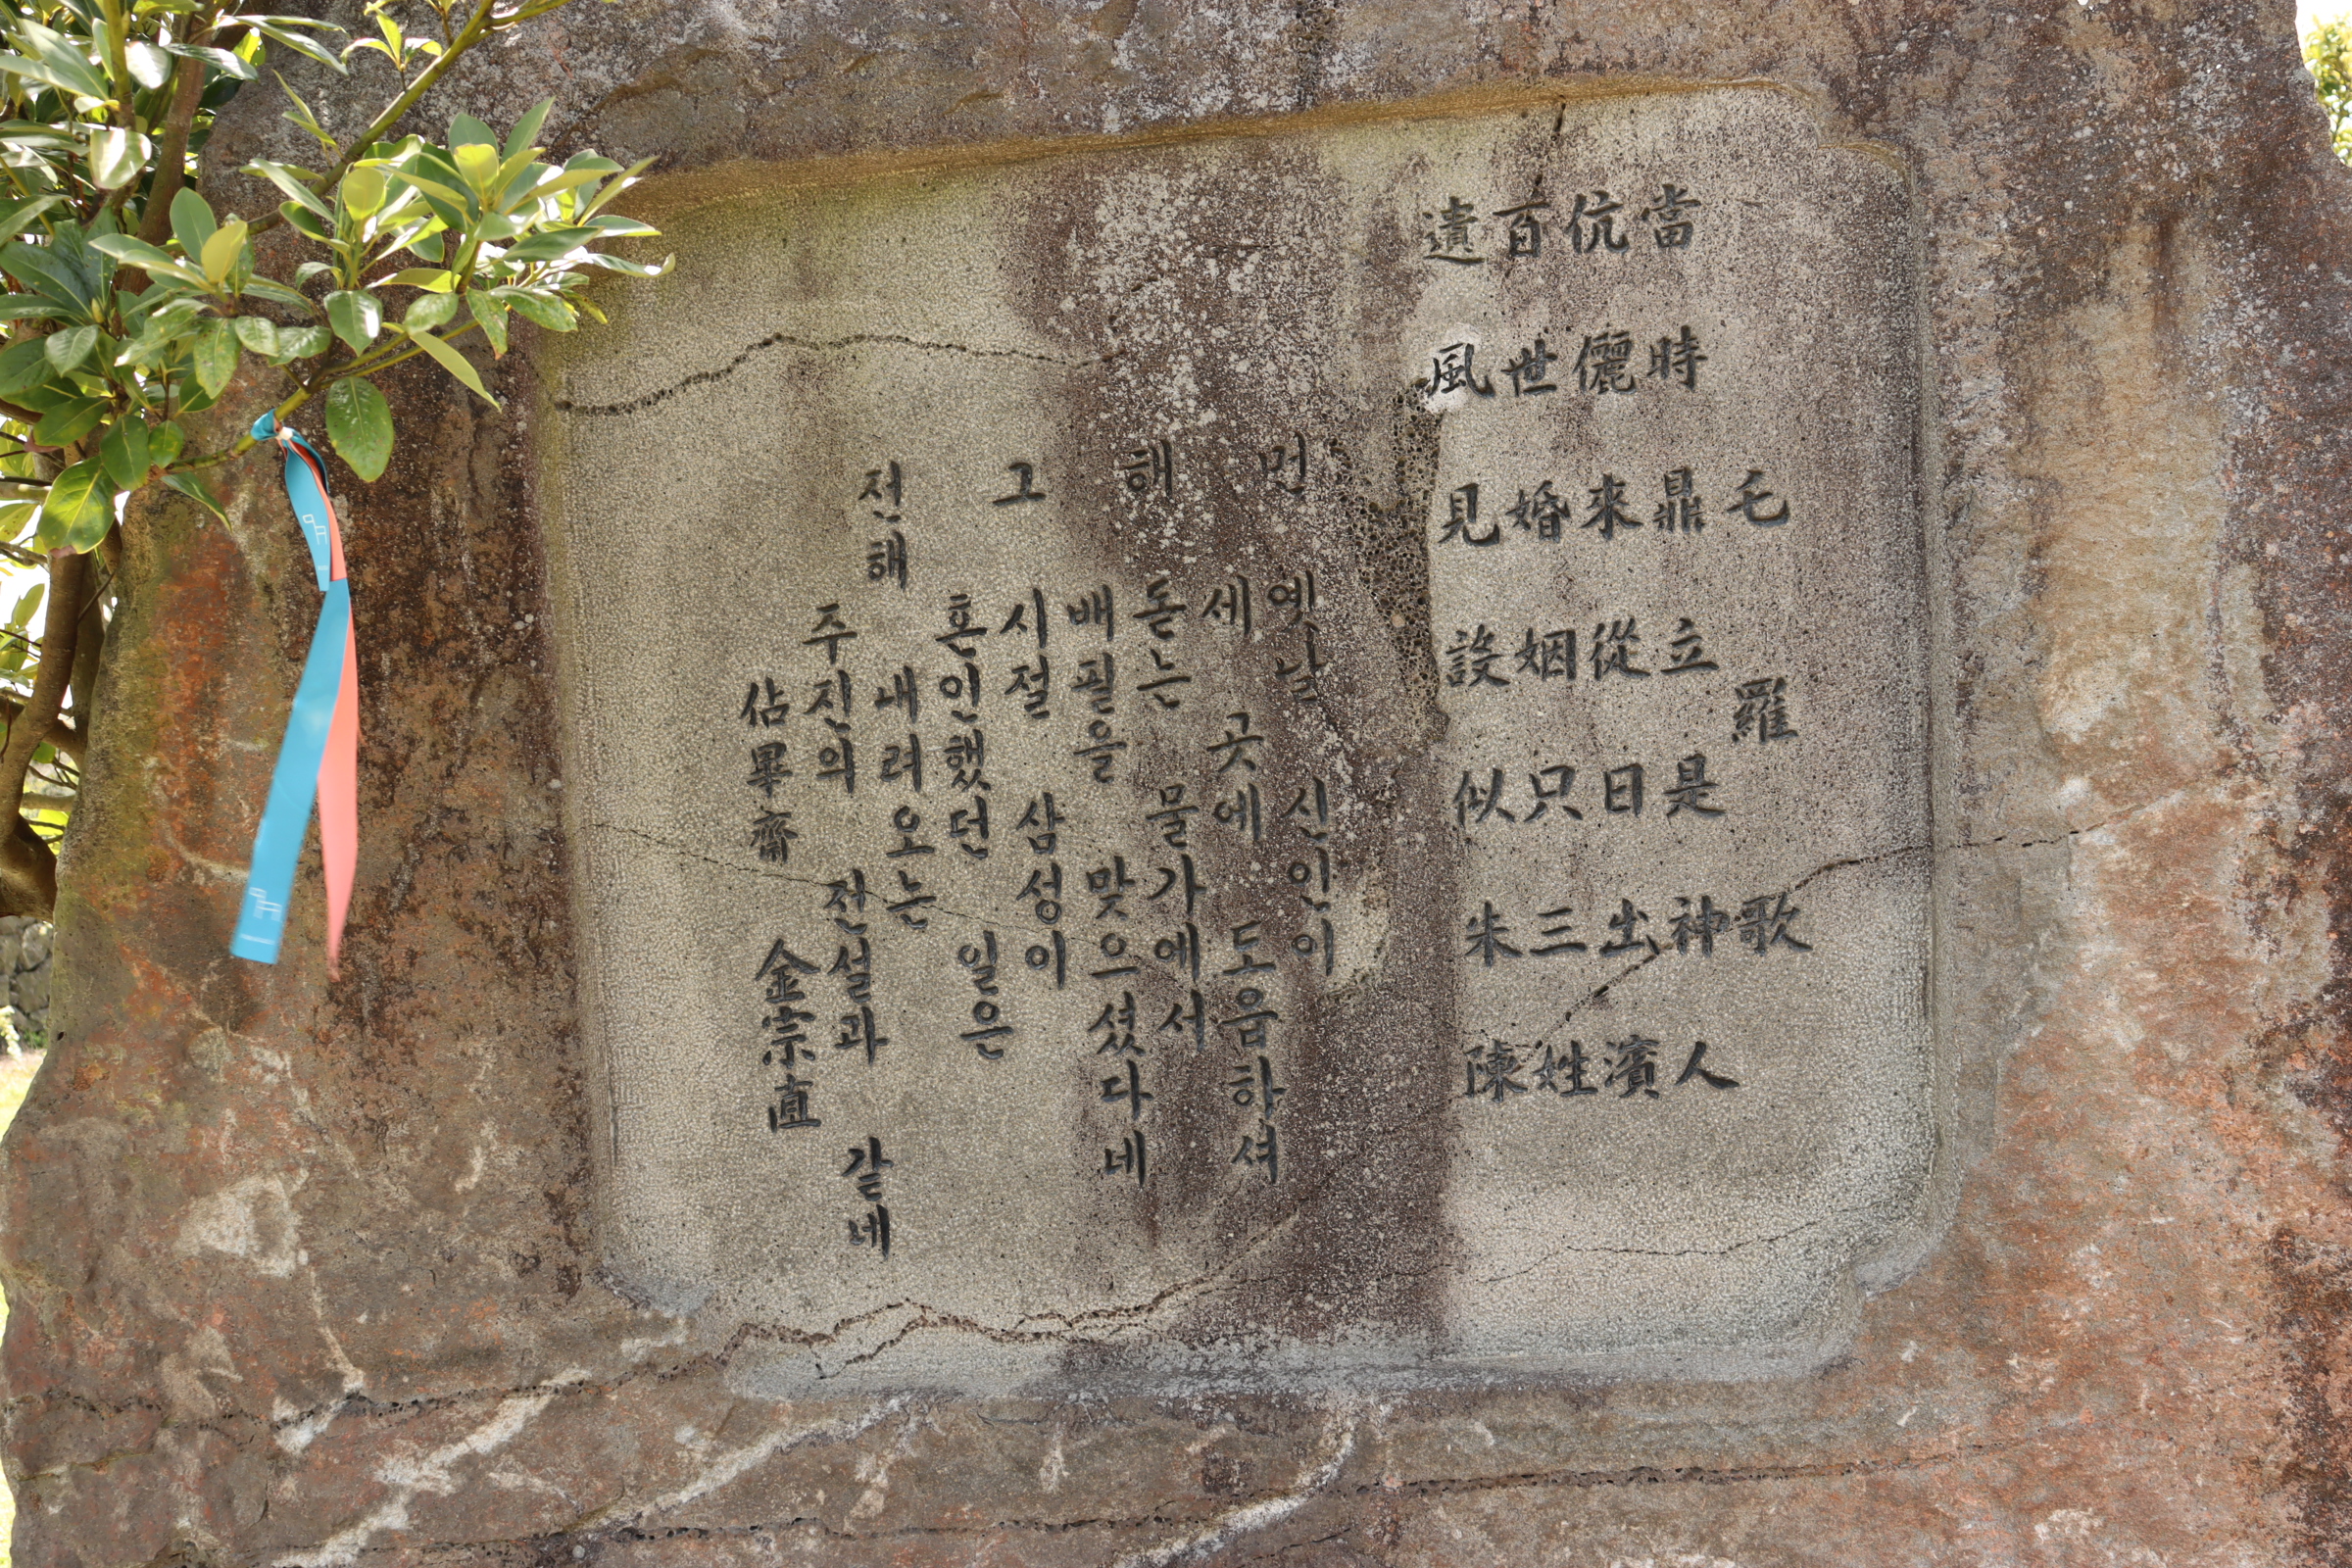 乇羅歌
當時鼎立是神人
伉儷來從日出濱
百世婚姻只三姓
遺風見設似朱陳
먼 옛날 신인이
세 곳에 도읍하셔
해 돋는 물가에서
배필을 맞으셨다네
그 시절 삼성이
혼인했던 일은
전해 내려오는
주진의 전설과 같네
佔畢齋 金宗直